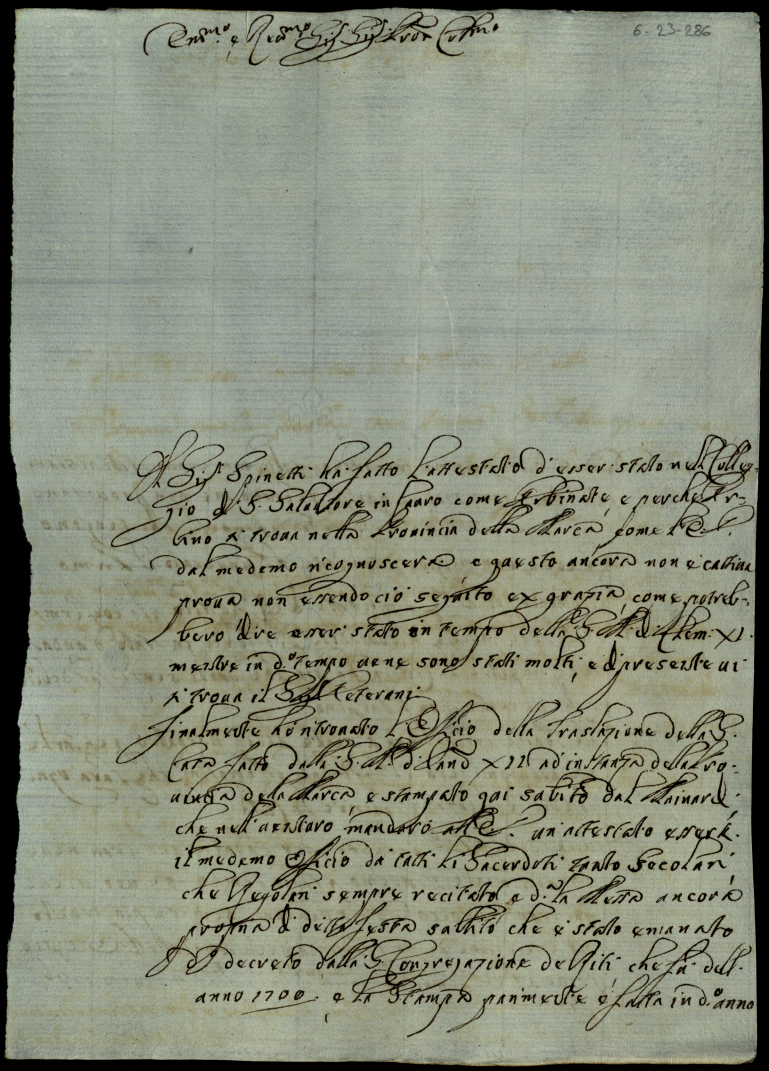 Em.mo e Rev.mo Sig. Sig. Pron Col.mo
6-23-286
Il Sig.r Spinelli ha fatto l'attestato d'esser stato nel Colle-
gio di S. Salvatore in Lauro come Urbinate, e perche Ur-
bino si trova nella Provincia della Marca, come l'E. V.
dal medemo ricognoscerà e questo ancora non è cattiva
prova non essendo ciò seguito ex gratia, come potreb-
bero dire esser stato in tempo della S. M. di Clem: XI.
mentre in d.o tempo ve ne sono stati molti, e di presente vi
si trova il Sig.r Veterani.
Finalmente hò ritrovato l'Officio della Traslazione della S.
Casa fatto dalla S. M. d'Innd XII ad instanza della Pro-
vincia della Marca, e stampato qui subito dal Mainardi
che nell'venturo mandarò all'E. V. un attestato esser
il medemo Officio da tutti li Sacerdoti tanto Secolari
che Regolari sempre recitato e d.a la Messa ancora
propria di detta festa subito che è stato emanato
il decreto dalla S. Congregazione de Riti che fu dell'
anno 1700 e la Stampa parimente è fatta in d.o anno